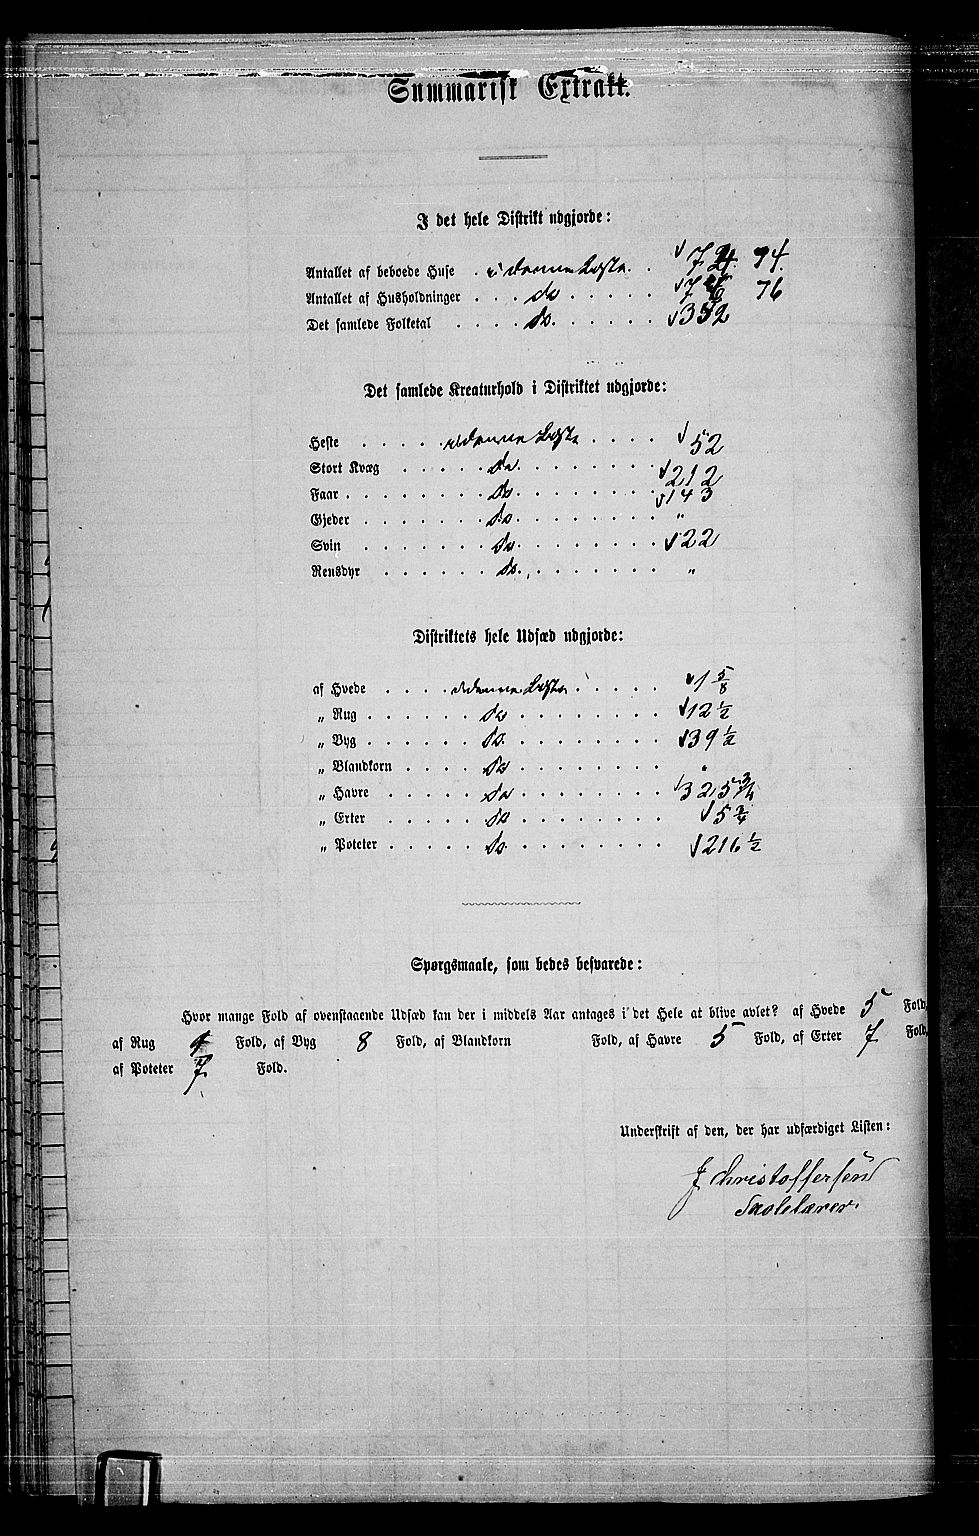 Summarisk Extrakt.
I det hele Distrikt udgjorde:
Antallet af beboede Huse . i denne Liste. . 74. 74.
Antallet af Husholdninger . . . do . . . . . . 76 76
Det samlede Folketal . . . . do. . . . . . . 352
Det samlede Kreaturhold i Distriktet udgjorde:
Heste . . . . . i denne Liste . . . . 52
Stort Kvæg . . . . . do . . . . . . . . 212
Faar . . . . . . . . do . . . . . . . . 143
Gjeder . . . . . . . do . . . . . . . . "
Svin . . . . . . . do . . . . . . . . 22
Rensdyr . . . . . . do. . . . . . . . "
Distriktets hele Udsæd udgjorde:
af Hvede . . . . i denne Liste . . . . . 1 5/8
„ Rug . . . . . . . do . . . . . . . . 12 1/2
„ Byg . . . . . . . do. . . . . . . . . 39 1/2
„ Blandkorn . . . . do . . . . . . . . "
„ Havre . . . . . . do . . . . . . . . 325 3/4
„ Erter . . . . . . do . . . . . . . . 5 3/4
„ Poteter . . . . . do . . . . . . . . 216 1/2
Spørgsmaale, som bedes besvarede:
Hvor mange Fold af ovenstaaende Udsæd kan der i middels Aar antages i det Hele at blive avlet? af Hvede 5 Fold,
af Rug Fold, af Byg 8 Fold, af Blandkorn Fold, af Havre 5 Fold, af Erter 7 Fold,
af Poteter 7 Fold.
Underskrift af den, der har udfærdiget Listen:
J Christoffersen
Skolelærer.